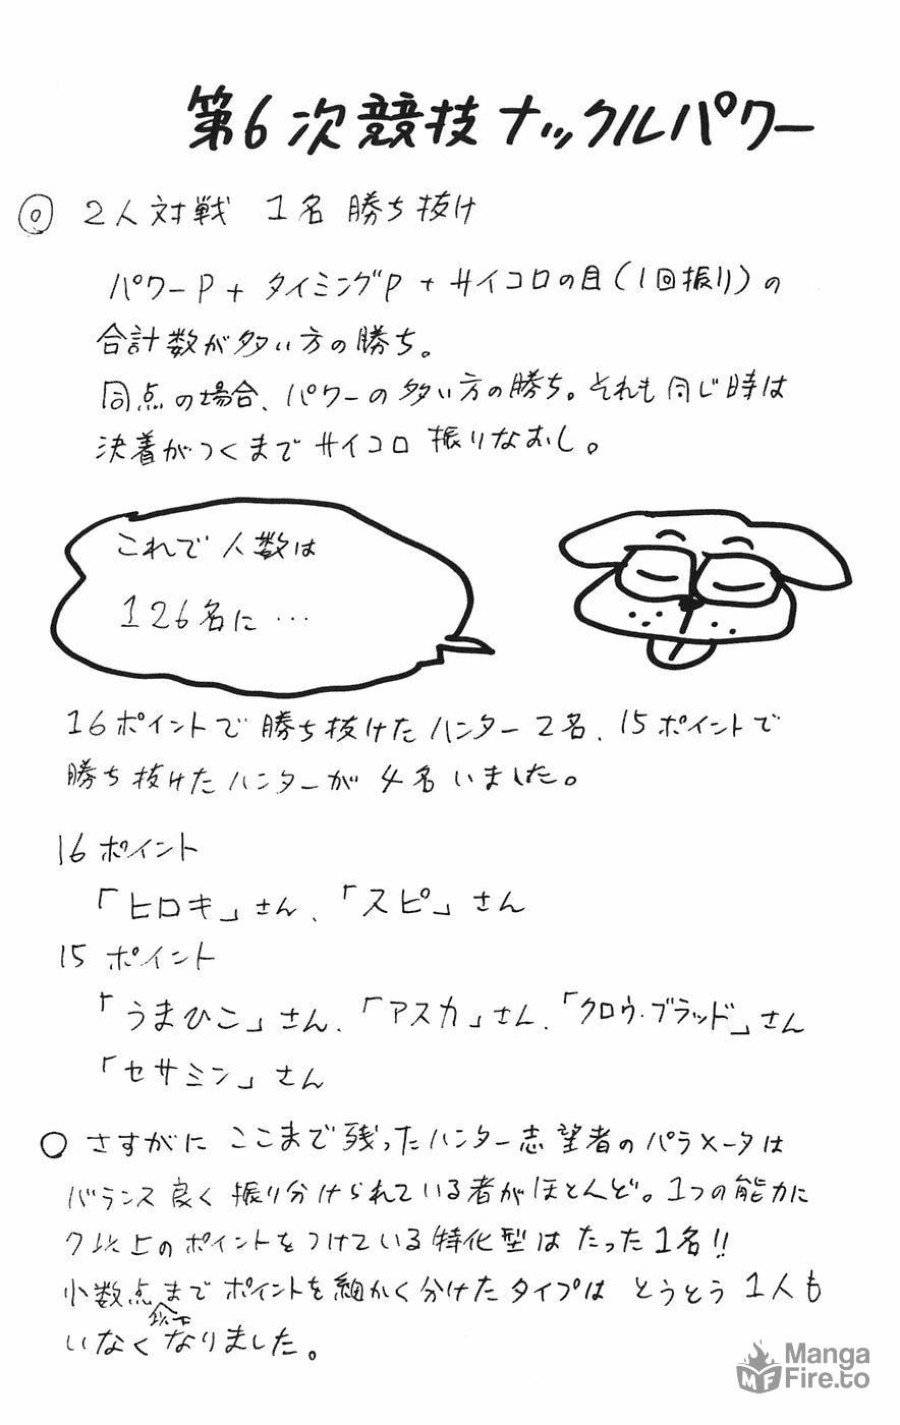 第6次競技ナックルパワー
◎ 2人対戦 1名勝ち抜け
パワーP+タイミングP+サイコロの目(1回振り)の
合計数が多い方の勝ち。
同点の場合、パワーの多い方の勝ち。それも同じ時は
決着がつくまでサイコロ振りなおし。
これで人数は
126名に…
16ポイントで勝ち抜けたハンター2名、15ポイントで
勝ち抜けたハンターが4名いました。
16ポイント
「ヒロキ」さん、「スピ」さん
15ポイント
「うまひこ」さん、「アスカ」さん、「クロウ・ブラッド」さん
「セサミン」さん
○ さすがにここまで残ったハンター志望者のパラメータは
バランス良く振り分けられている者がほとんど。1つの能力に
7以上のポイントをつけている特化型はたった1名!!
小数点までポイントを細かく分けたタイプはとうとう1人も
いなくなりました。
Manga
Fire.to
MF